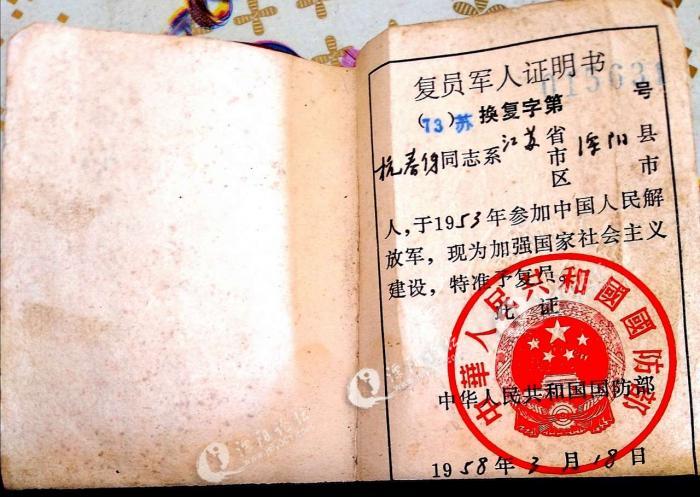 复员军人证明书
015631
(73)苏换复字第 号
杭春得同志系江苏省市区溧阳县市
人，于1953年参加中国人民解
放军，现为加强国家社会主义
建设，特准予复员。
此证
中华人民共和国国防部
中華人民共和國國防部
1958年3月18日